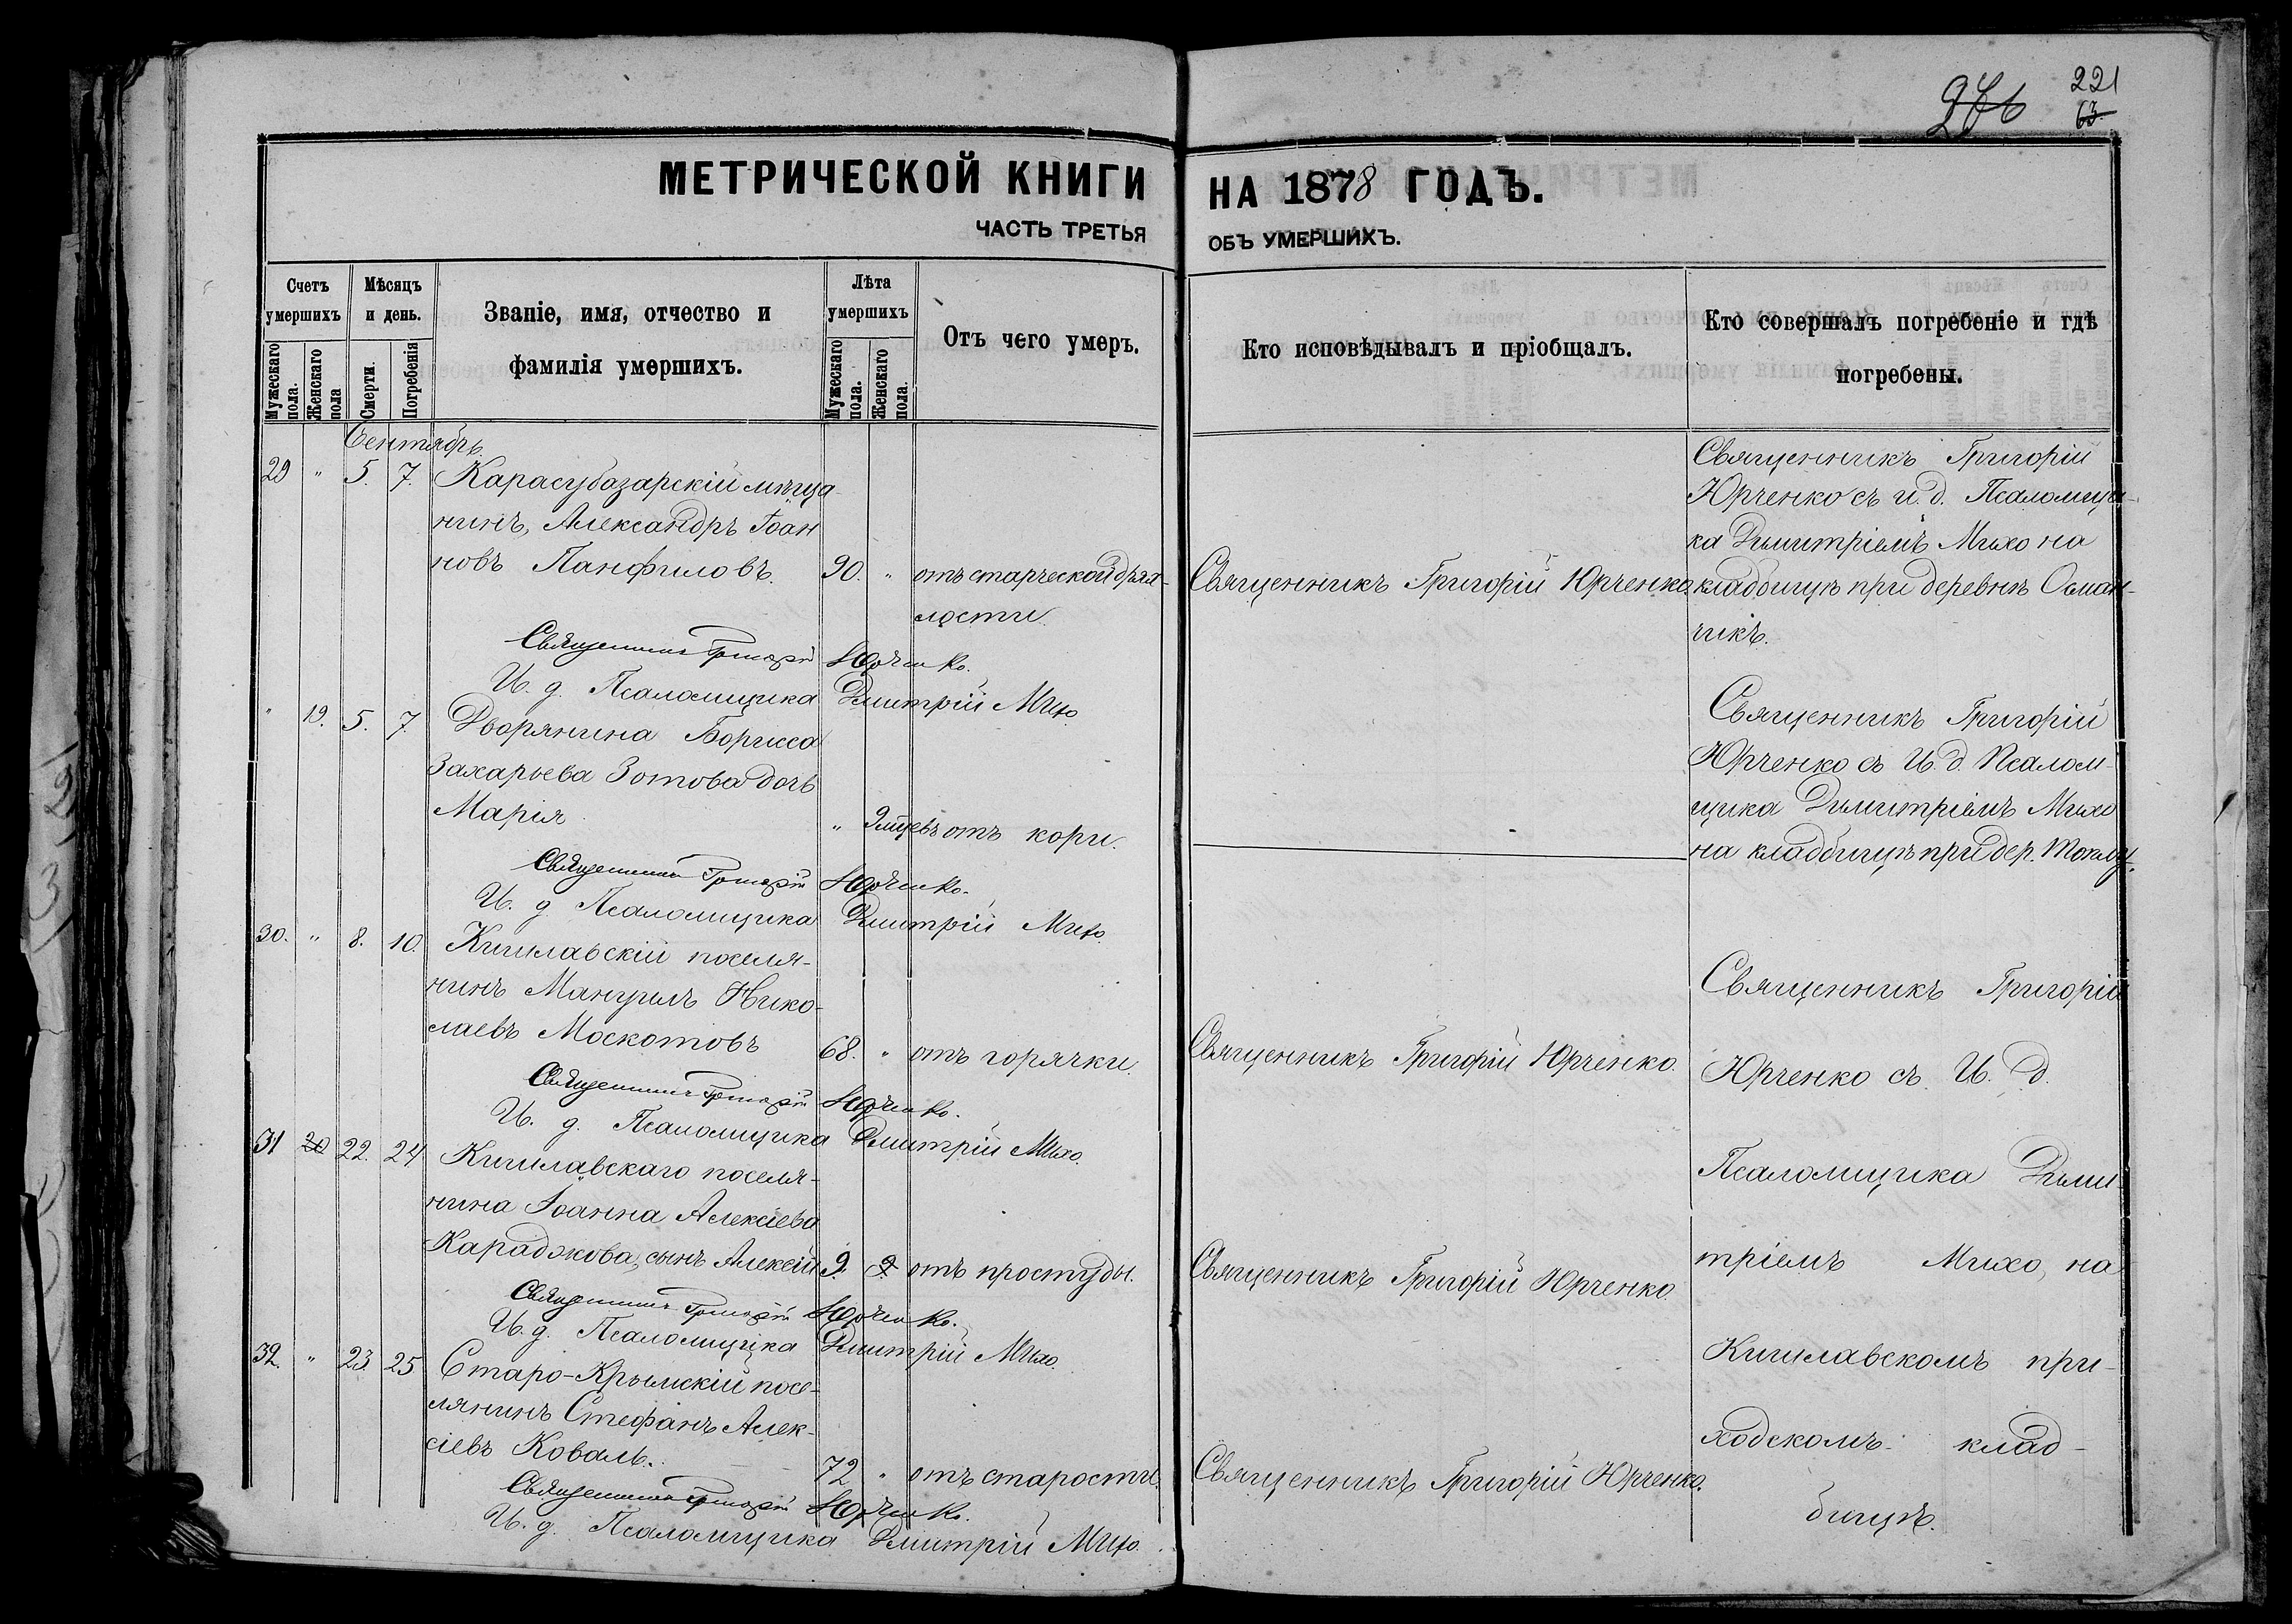 276
221
63.
МЕТРИЧЕСКОЙ КНИГИ
НА 1878 ГОДЪ.
ЧАСТЬ ТРЕТЬЯ
ОБЪ УМЕРШИХЪ.
Счетъ умершихъ
Мужескаго пола.
Женскаго пола
Мѣсяцъ и день.
Смерти.
Погребенія
Званіе, имя, отчество и
фамилія умершихъ.
Лѣта умершихъ
Мужескаго пола.
Женскаго пола.
Отъ чего умеръ.
Кто исповѣдывалъ и пріобщалъ.
Кто совершалъ погребеніе и гдѣ
погребены.
Сентябрь.
29 " 5. 7. Карасубазарскій мѣща
нинъ, Александръ Іоан
новъ Панфиловъ. 90. " отъ старческой дрях-
лости.
Священникъ Григорій Юрченко.
Священникъ Григорій
Юрченко съ и. д. Псаломщи-
ка Димитріемъ Михо на
кладбищѣ при деревнѣ Осман-
чикъ.
Священникъ Григорій Юрченко.
И. д. Псаломщика Дмитрій Михо.
" 19. 5. 7. Дворянина Бориса
Захарьева Зотова дочь
Марія " 9 мѣсцевъ отъ кори.
Священникъ Григорій
Юрченко съ И. д. Псалом-
щика Димитріемъ Михо
на кладбищѣ при дер. Токлу.
Священникъ Григорій Юрченко.
И. д. Псаломщика Дмитрій Михо.
30. " 8. 10. Кишлавскій поселя-
нинъ Мануилъ Нико-
лаевъ Москотовъ 68. " отъ горячки.
Священникъ Григорій Юрченко.
Священникъ Григорій Юрченко.
И. д. Псаломщика Дмитрій Михо.
31 20 22. 24 Кишлавскаго поселя-
нина Іоанна Алексіева
Караджова, сынъ Алексій 9. 9 отъ простуды.
Священникъ Григорій Юрченко.
Священникъ Григорій Юрченко.
И. д. Псаломщика Дмитрій Михо.
32. " 23 25 Старо-Крымскій посе-
лянинъ Стефанъ Алек-
сіевъ Коваль. 72 " отъ старости.
Священникъ Григорій Юрченко.
Священникъ Григорій Юрченко.
И. д. Псаломщика Дмитрій Михо.
Священникъ Григорій
Юрченко съ И. д.
Псаломщика Дими-
тріемъ Михо, на
Кишлавскомъ при-
ходскомъ клад-
бищѣ.